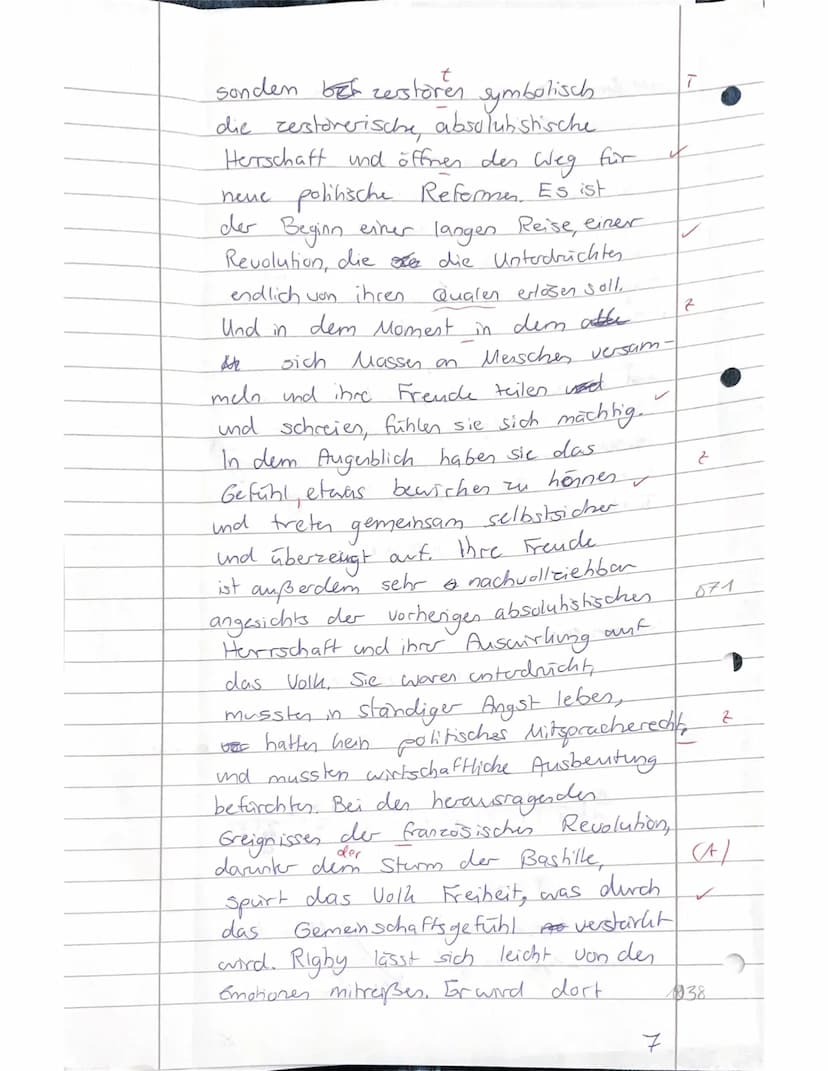 t
sondern zerstören symbolisch T
die zerstörerische, absolutistische
Herrschaft und öffnen den Weg für
neue politische Reformen. Es ist
der Beginn einer langen Reise, einer
Revolution, die die Unterdrückten
endlich von ihren Qualen erlösen soll.
Und in dem Moment in dem z
sich Massen an Menschen versam-
meln und ihre Freude teilen
und schreien, fühlen sie sich mächtig.
In dem Augenblick haben sie das z
Gefühl, etwas bewirken zu können
und treten gemeinsam selbstsicher
und überzeugt auf. Ihre Freude
ist außerdem sehr nachvollziehbar
angesichts der vorherigen absolutistischen 871
Herrschaft und ihrer Auswirkung auf
das Volk. Sie waren unterdrückt,
mussten in ständiger Angst leben,
hatten kein politisches Mitspracherecht, z
und mussten wirtschaftliche Ausbeutung
befürchten. Bei den herausragenden
Ereignissen der französischen Revolution,
der
darunter dem Sturm der Bastille, (A)
spürt das Volk Freiheit, was durch
das Gemeinschaftsgefühl verstärkt
wird. Rigby lässt sich leicht von den
Emotionen mitreißen. Er wird dort 938
7